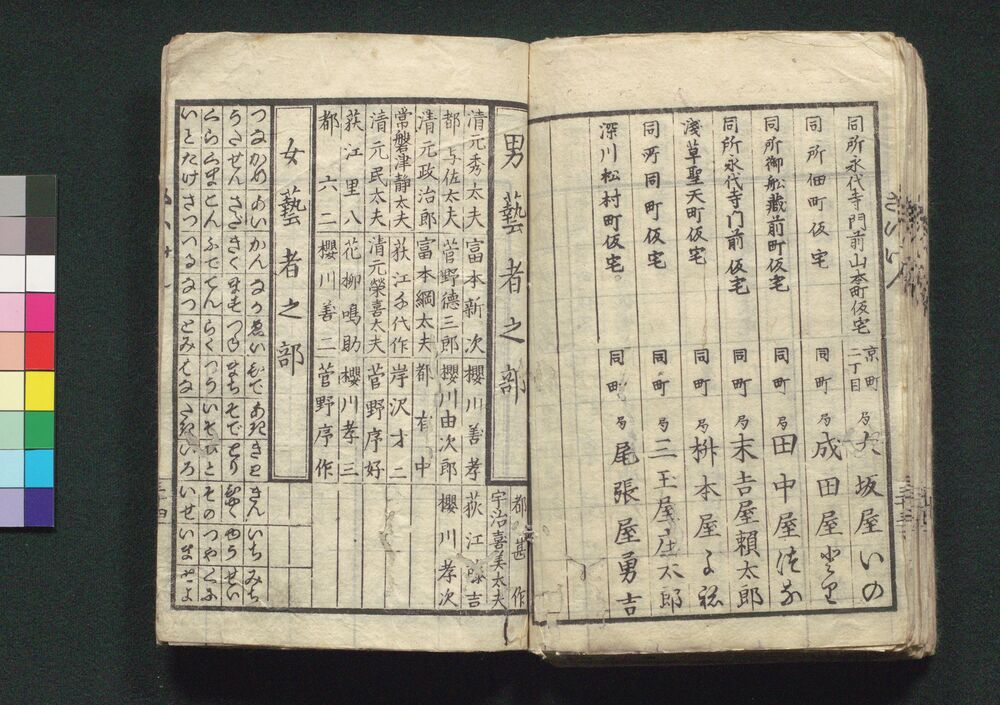 同所永代寺門前山本町仮宅 京町二丁目 局 大坂屋いの
同所佃町仮宅 同町 局 成田屋
同所御舩蔵前町仮宅 同町 局 田中屋
同所永代寺門前仮宅 同町 局 末吉屋頼太郎
淺草聖天町仮宅 同町 局 桝本屋
同所同町仮宅 同町 局 三玉屋庄太郎
深川松村町仮宅 同町 局 尾張屋勇吉
男藝者之部
都甚作
清元秀太夫 富本新次 櫻川善孝 宇治喜美太夫
都与佐太夫 菅野德三郎 櫻川由次郎 荻江 吉
清元政治郎 富本綱太夫 都有中 櫻川孝次
常磐津静太夫 荻江千代作 岸沢才二
清元民太夫 清元榮喜太夫 菅野序好
荻江里八 花柳鳴助 櫻川孝三
都六二 櫻川善二 菅野序作
女藝者之部
つな かめ あい かん なか ゑい ひで あき きと きん いち みち
うた せん さだ きく ます つね まち そで とり せい
くら くま とん ふで てん らく つう いそ ひと その つや くに
いと たけ さつ つる なつ とみ はな いろ いせ いま さよ